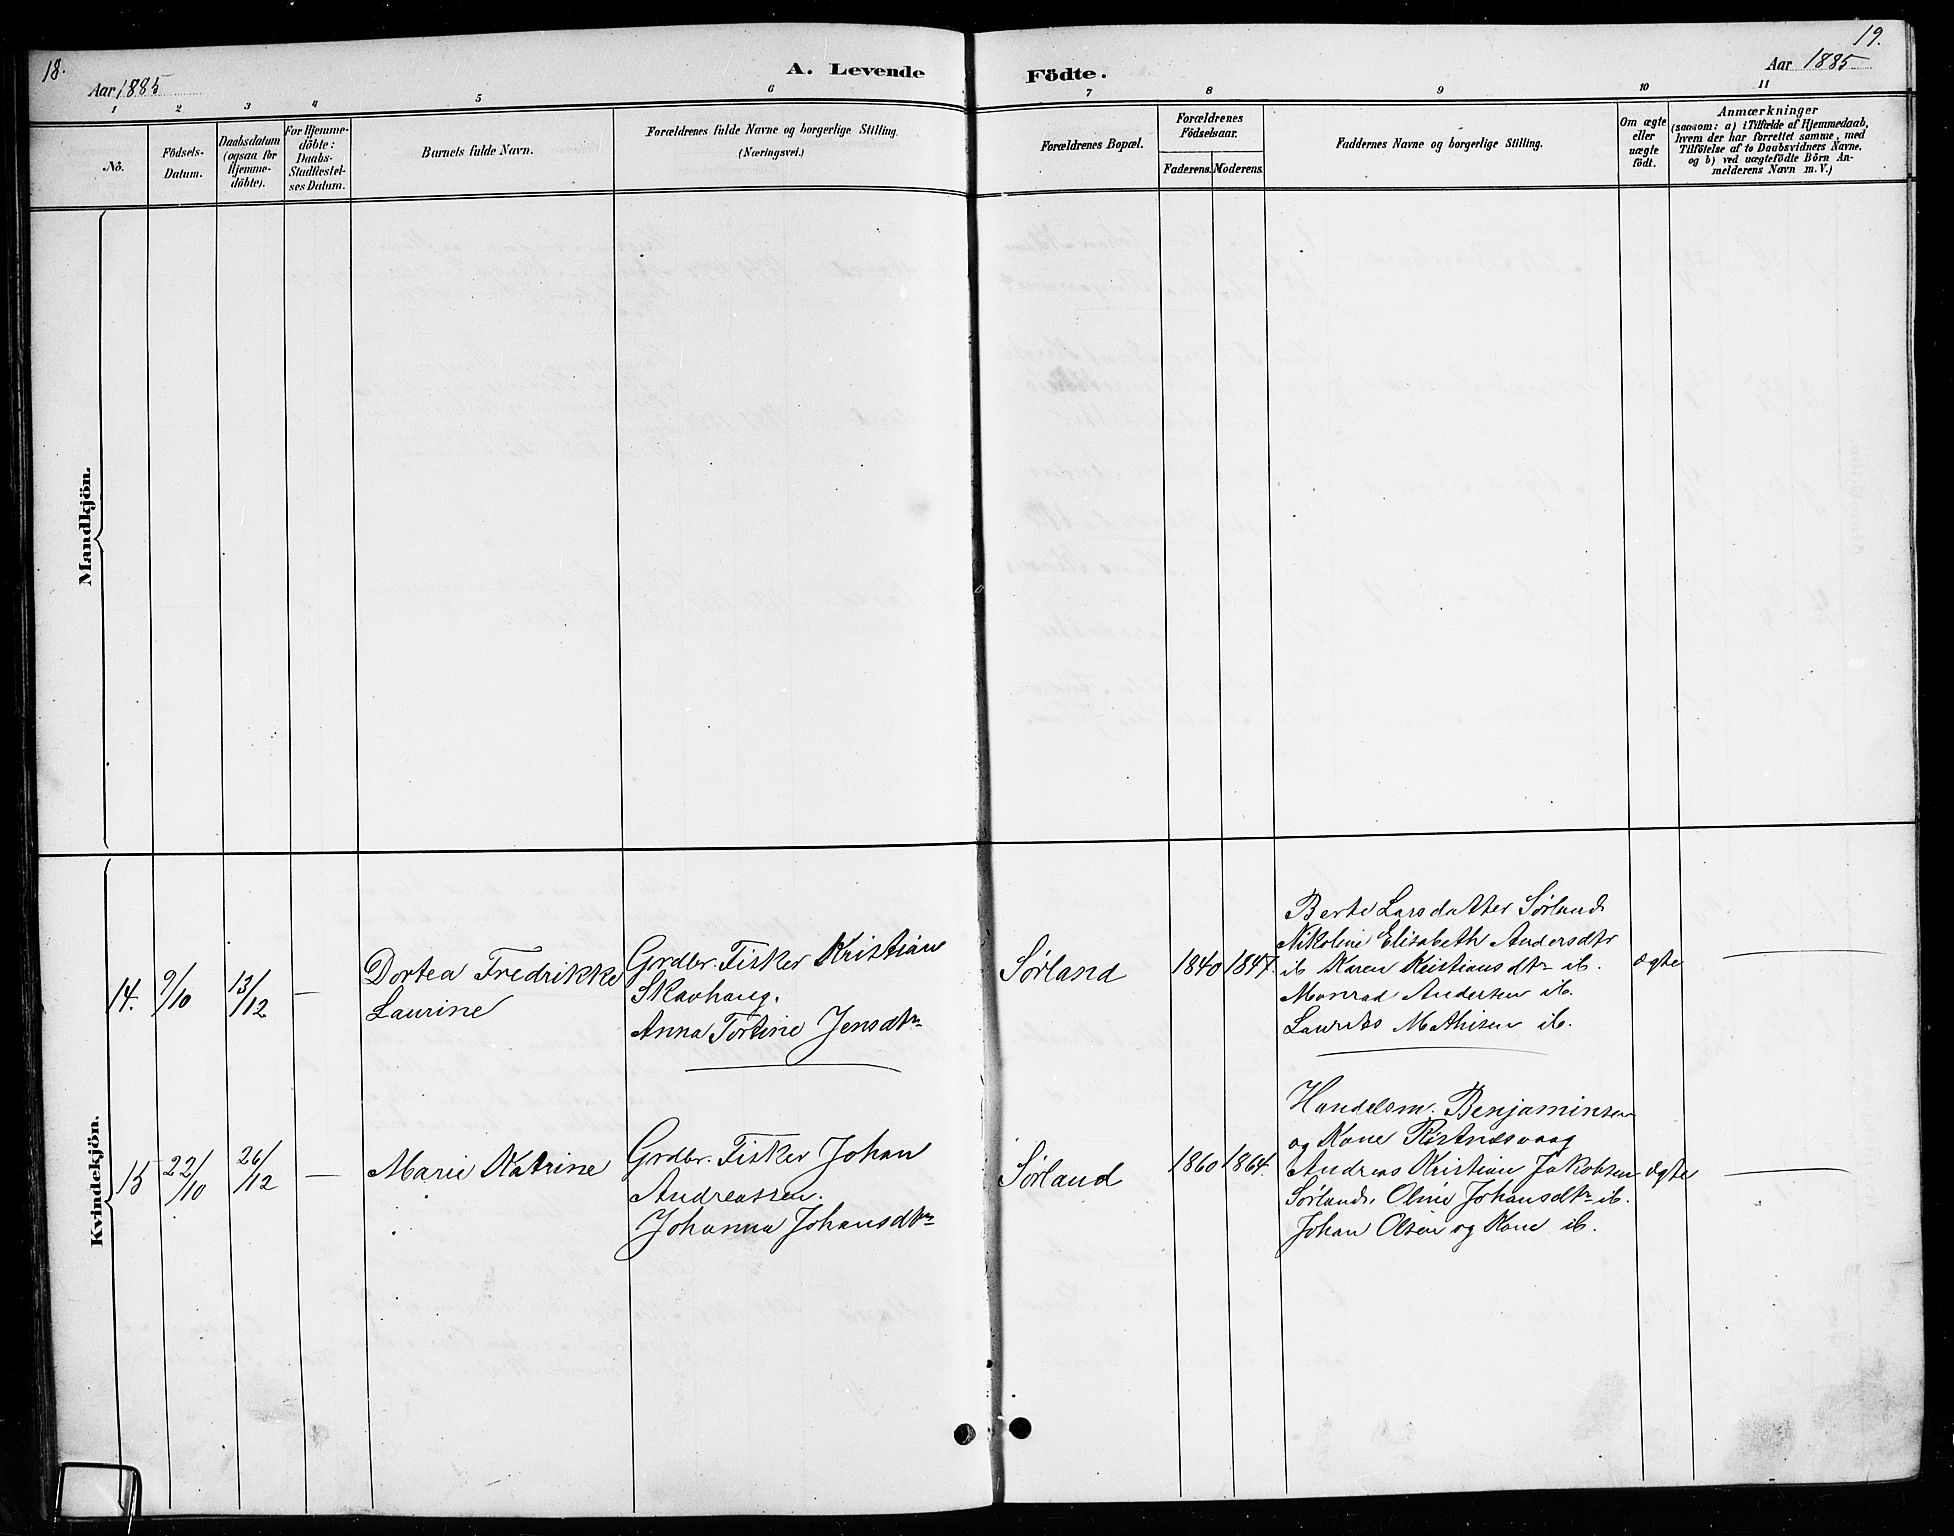 18.
Aar 1885
A. Levende
Födte.
19.
Aar 1885
1
2
3
4
5
6
7
8
9
10
11
No.
Födsels-
Datum.
Daabsdatum
(ogsaa for
Hjemme-
döbte).
For Hjemme-
döbte:
Daabs-
Stadfæstel-
ses Datum.
Barnets fulde Navn.
Forældrenes fulde Navne og borgerlige Stilling.
(Næringsvei.)
Forældrenes Bopæl.
Forældrenes
Födselsaar.
Faderens.
Moderens.
Faddernes Navne og borgerlige Stilling.
Om ægte
eller
uægte
födt.
Anmærkninger
(saasom: a) i Tilfælde af Hjemmedaab,
hvem der har forrettet samme, med
Tilföielse af to Daabsvidners Navne.
og b) ved uægtefödte Börn An-
melderens Navn m. V.)
Mandkjön.
Kvindekjön.
14.
9/10
13/12
—
Dortea Fredrikke
Laurine
Grdbr. Fisker Kristian
Skavhaug.
Anna Tortine Jensdtr
Sørland
1840
1847.
Berte Larsdatter Sørland
Nikoline Elisabeth Andersdtr
ib Karen Kristiansdtr ib.
Monrad Andersen ib.
Laurits Mathisen ib.
ægte
15
22/10
26/12
—
Marie Katrine
Grdbr. Fisker Johan
Andreassen.
Johanna Johansdtr
Sørland
1860
1864.
Handelsm. Benjaminsen
og Kone Røstnæsvaag
Andreas Kristian Jakobsen
Sørland. Oline Johansdtr ib.
Johan Olsen og Kone ib.
ægte